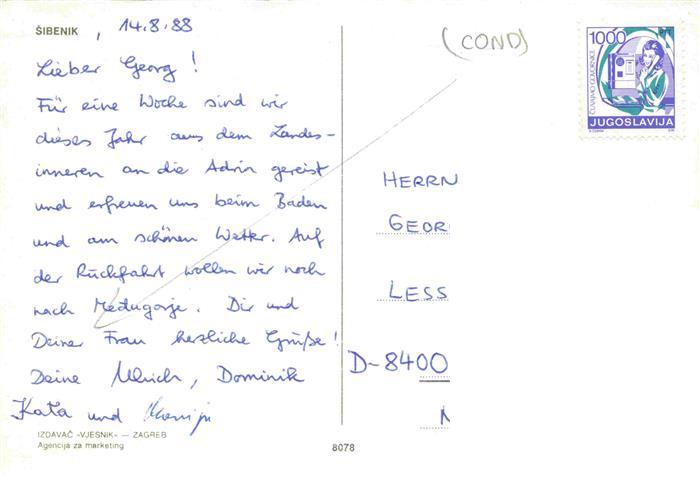 ŠIBENIK, 14.8.88
Lieber Georg!
Für eine Woche sind wir
dieses Jahr aus dem Landes-
inneren an die Adria gereist
und erfreuen uns beim Baden
und am schönen Wetter. Auf
der Rückfahrt wollen wir noch
nach Međugorje. Dir und
Deiner Frau herzliche Grüße!
Deine Ulrich, Dominik
Kata und
IZDAVAČ »VJESNIK« — ZAGREB
Agencija za marketing
8078
(COND)
1000
PTT
ČUVAJMO GOVORNICE
JUGOSLAVIJA
HERRN
GEOR
LESS
D-8400